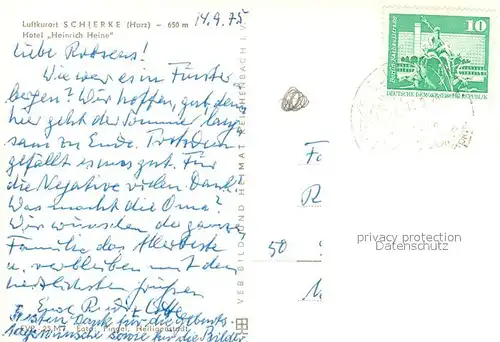 Luftkurort SCHIERKE (Harz) – 650 m
Hotel „Heinrich Heine"
14.9.75
Liebe
Wie war es in Fürsten
bergen? Wir hoffen, gut, denn
hier geht der Sommer lang
sam zu Ende. Trotzdem
gefällt es uns gut. Für
die Negative vielen Dank!
Was macht die Oma?
Wir wünschen der ganzen
Familie das Allerbeste
u. verbleiben mit den
herzlichsten Grüßen
Eure
Besten Dank für die Geburts
tagswünsche sowie für die Bilder
EVP 25 M Foto: Pingel, Heiligenstadt
VEB BILD UND HEIMAT REICHENBACH I. V.
10
DEUTSCHE DEMOKRATISCHE REPUBLIK
50
privacy protection
Datenschutz